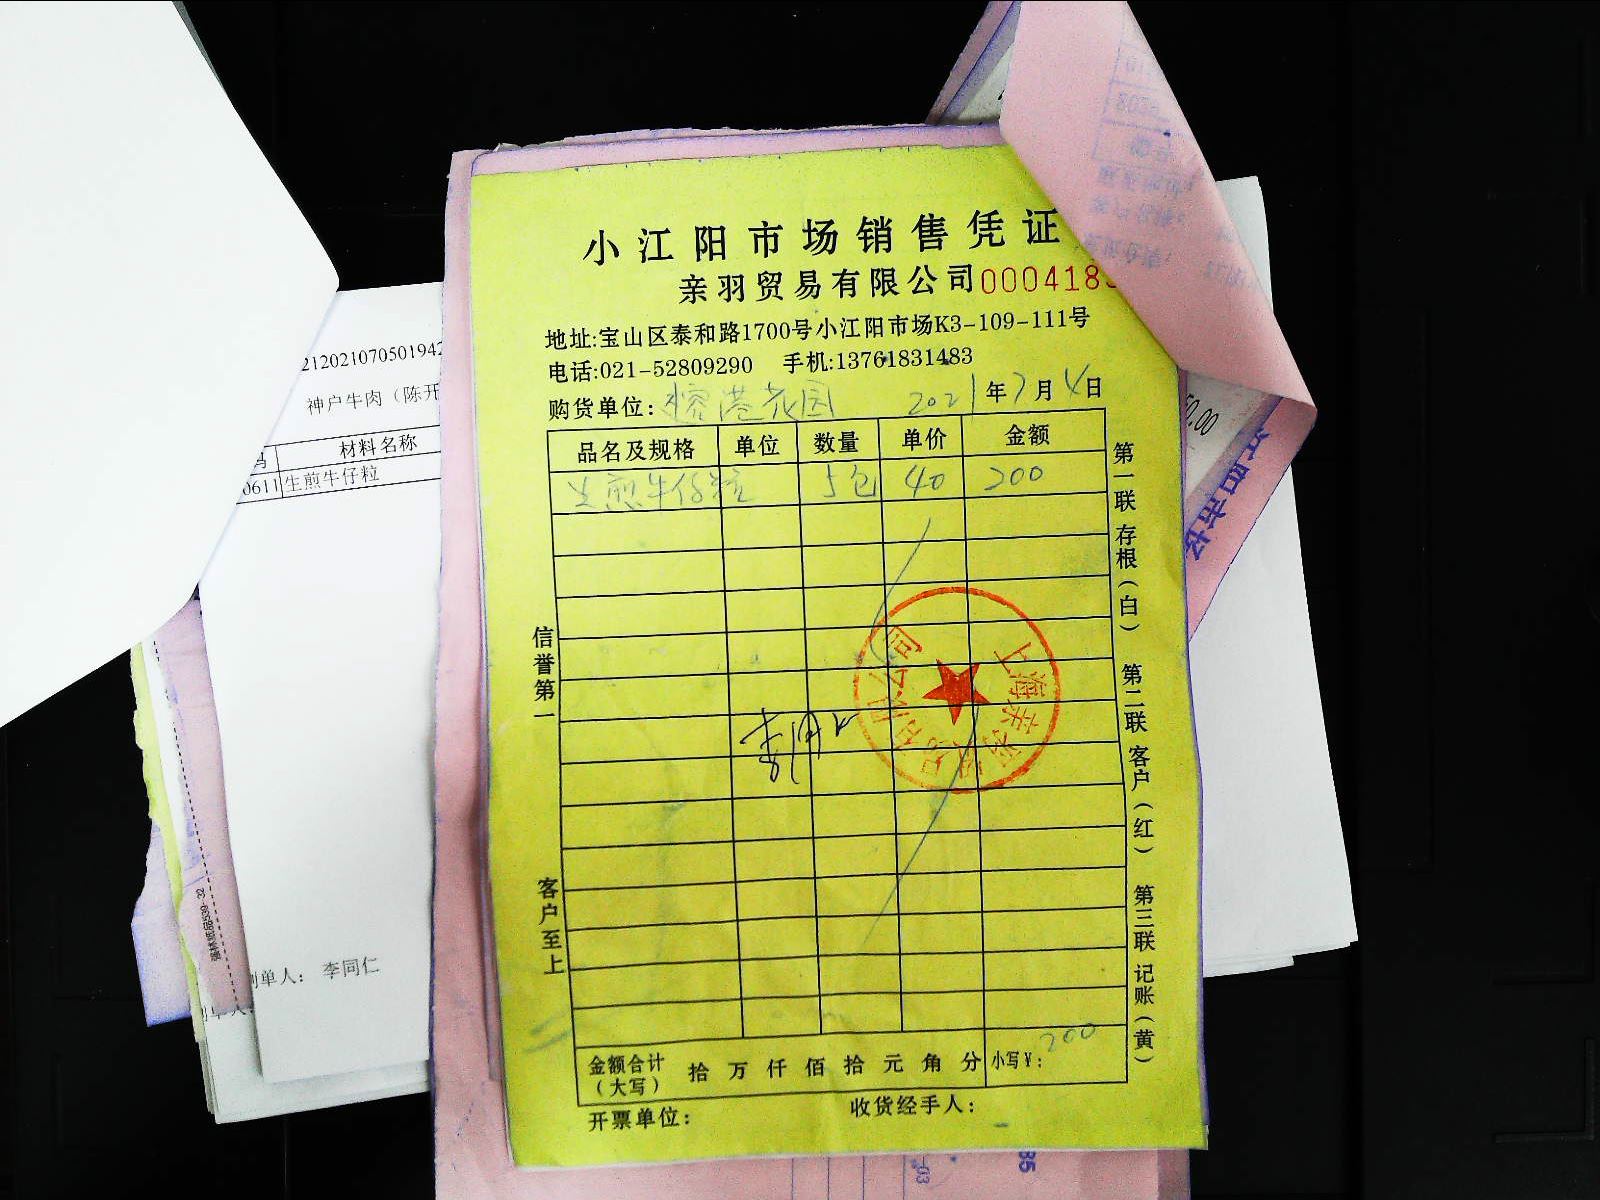 小江阳市场销售凭证
亲羽贸易有限公司 000418
地址:宝山区泰和路1700号小江阳市场K3-109-111号
电话:021-52809290 手机:13761831483
购货单位: 港花园 2021年7月4日
品名及规格 单位 数量 单价 金额
生煎牛仔粒 5包 40 200
信誉第一
客户至上
第一联 存根(白) 第二联 客户(红) 第三联 记账(黄)
上海亲羽贸易有限公司
金额合计(大写) 拾 万 仟 佰 拾 元 角 分 小写¥: 200
开票单位: 收货经手人:
21202107050194
神户牛肉(陈开
材料名称
0611 生煎牛仔粒
制单人: 李同仁
50.00
江阳市场